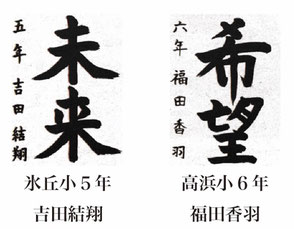 未来
五年 吉田結翔
氷丘小5年
吉田結翔
希望
六年 福田香羽
高浜小6年
福田香羽